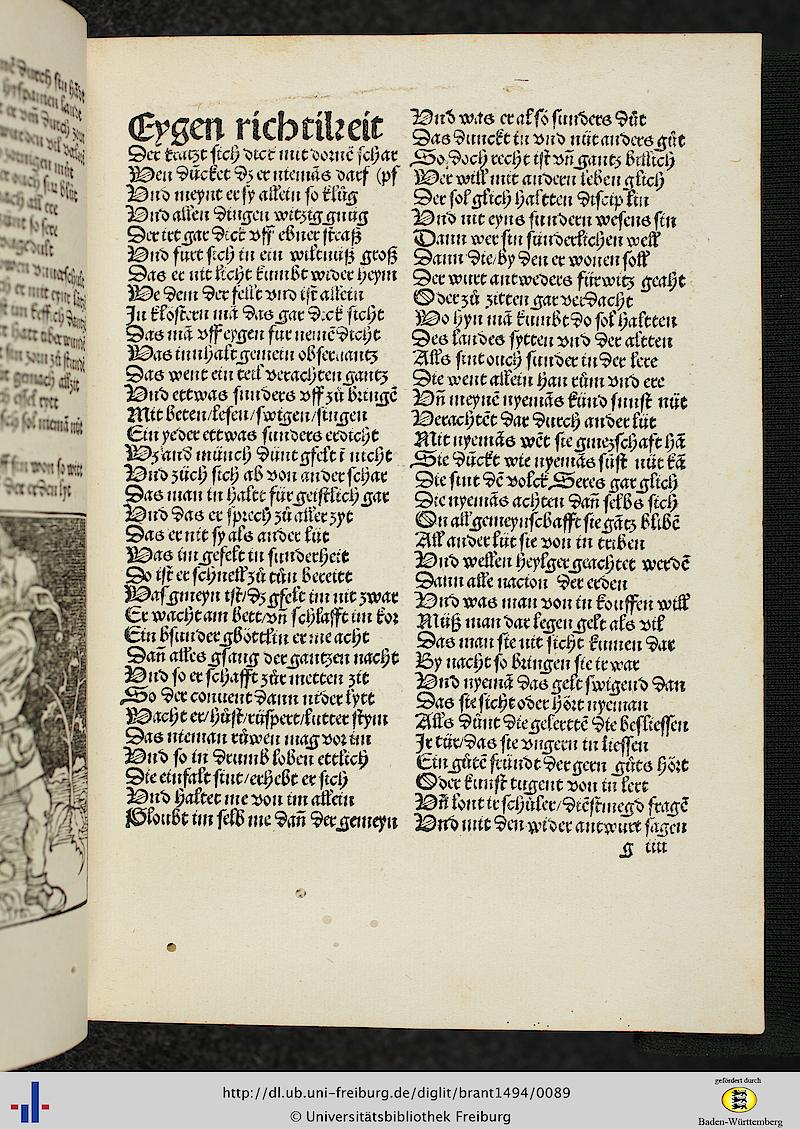 Eygen richtikeit
Der kratzt sich dick mit dornē schar
Wen dücket dz er niemās darf (pf
Vnd meynt er sy allein so klůg
Vnd allen dingen witzig gnůg
Der irt gar dick vff ebner straß
Vnd fürt sich in ein wiltnüß groß
Das er nit licht kumbt wider heym
We dem der fellt vnd ist allein
In klostern mā das gar dick sicht
Das mā vff eygen für nemē dicht
Was innhalt gemein obseruantz
Das went ein teil verachten gantz
Vnd ettwas sunders vff zů bringē
Mit beten/lesen/swigen/singen
Ein yeder ettwas sunders erdicht
Wz and münch dünt gfelt ī nicht
Vnd züch sich ab von ander schar
Das man in haltt für geistlich gar
Vnd das er sprech zů aller zyt
Das er nit sy als ander lüt
Was im gefelt in sunderheit
Do ist er schnell zů tůn bereitt
Was gmeyn ist/dz gfelt im nit zwar
Er wacht am bett/vn̄ schlafft im kor
Ein bsunder gböttlin er me acht
Dan̄ alles gsang der gantzen nacht
Vnd so er schafft zůr metten zit
So der conuent dann nider lytt
Wacht er/hůst/rüspert/lutter stym
Das nieman růwen mag vor im
Vnd so in drumb loben ettlich
Die einfalt sint/erhebt er sich
Vnd haltet me von im allein
Gloubt im selb me dan̄ der gemeyn
Vnd was er also sunders důt
Das dunckt in vnd nüt anders gůt
So doch recht ist vn̄ gantz billich
Wer will mit andern leben glich
Der sol glich haltten disciplin
Vnd nit eyns sundern wesens sin
Dann wer sin sünderlichen well
Dann die/by den er wonen soll
Der wurt antweders fürwitz geaht
Oder zů zitten gar verdacht
Wo hyn mā kumbt do sol haltten
Des landes sytten vnd der altten
Alls sint ouch sunder in der lere
Die went allein han rům vnd ere
Vn̄ meynē nyemās künd sunst nüt
Verachtēt dar durch ander lüt
Mit nyemās wēt sie gmeȳschaft hā
Sie dückt wie nyemās süst nüt kā
Die sint dē volck Seres gar glich
Die nyemās achten dan̄ selbs sich
On all gemeynschafft sie gātz blibē
All ander lüt sie von in triben
Vnd wellen heylger geachtet werdē
Dann alle nacion der erden
Vnd was man von in kouffen will
Můß man dar legen gelt als vil
Das man sie nit sicht kumen dar
By nacht so bringen sie ir war
Vnd nyemā das gelt swigend dan
Das sie sicht oder hört nyeman
Alls důnt die gelerttē die besliessen
Ir tür/das sie vngern in liessen
Ein gůtē fründt der gern gůts hört
Oder kunst tugent von in lert
Vn̄ lont ir schůler/diēstmegd fragē
Vnd mit den wider antwurt sagen
g iiii
http://dl.ub.uni-freiburg.de/diglit/brant1494/0089
© Universitätsbibliothek Freiburg
gefördert durch
Baden-Württemberg